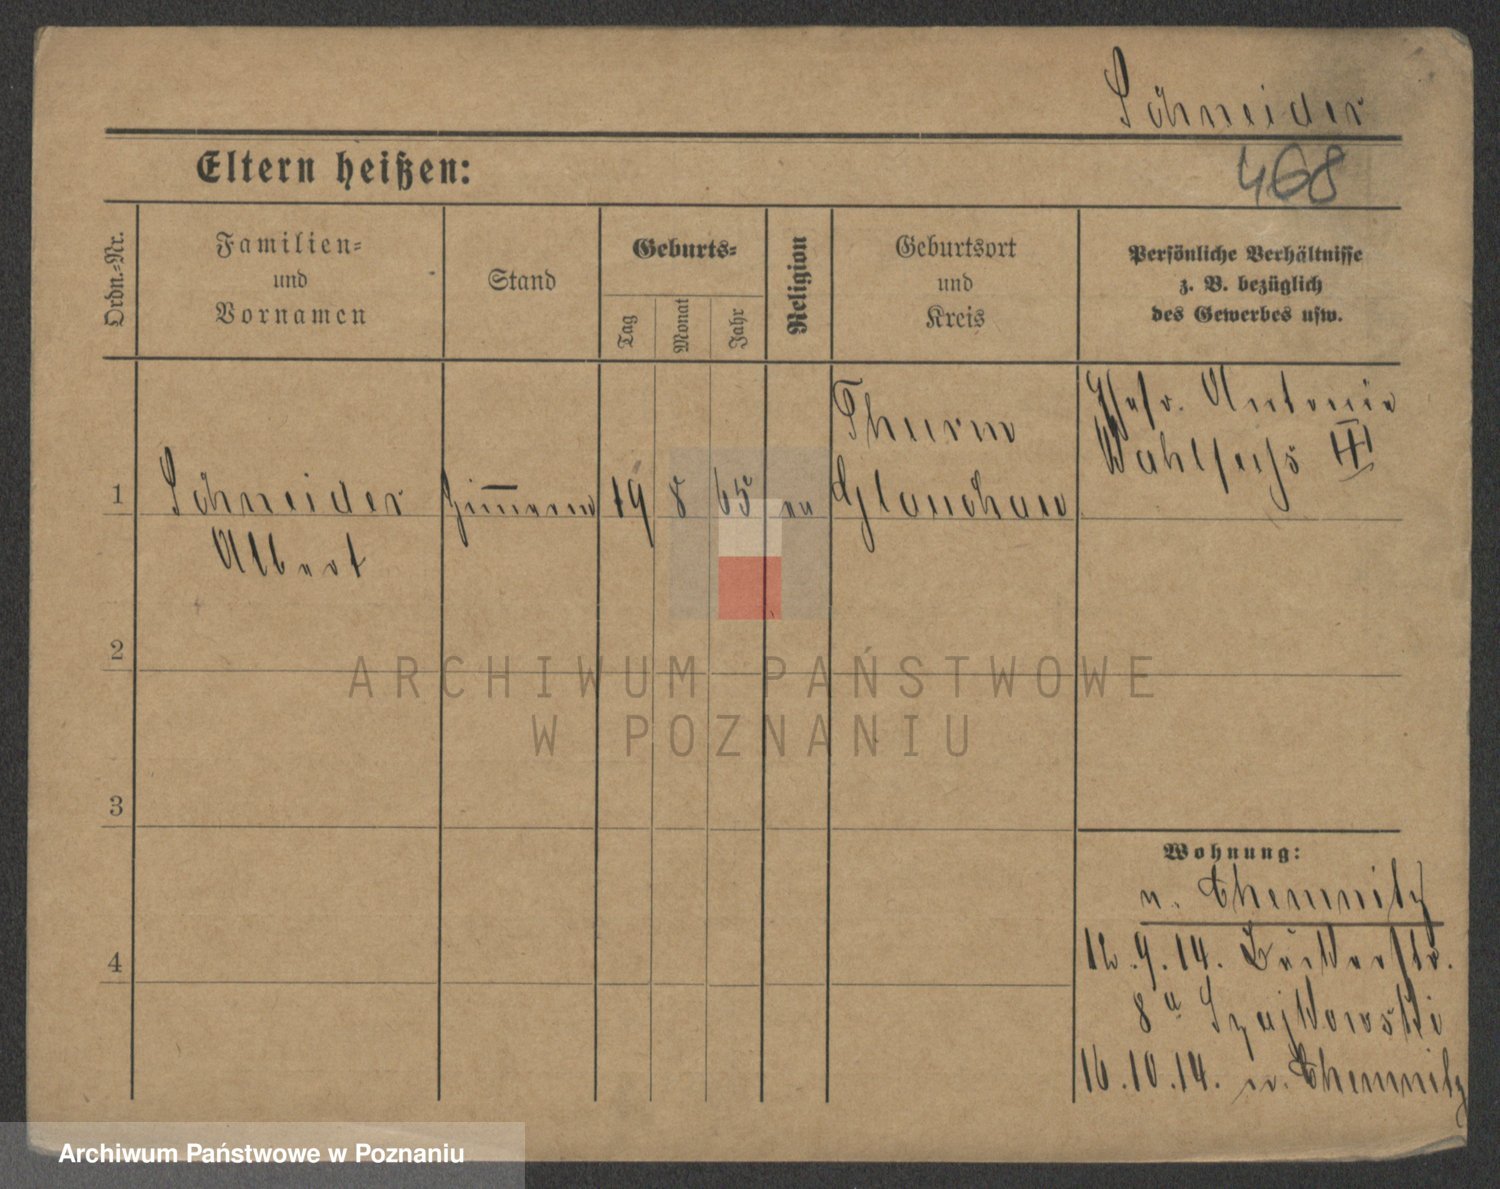 Schneider
Eltern heißen:
468
Ordn.-Nr.
Familien-
und
Vornamen
Stand
Geburts-
Tag
Monat
Jahr
Religion
Geburtsort
und
Kreis
Persönliche Verhältnisse
z. B. bezüglich
des Gewerbes usw.
1
Schneider
Albert
Zimmerm
19
8
65
ev
Thurm
Glauchau
Ehefr. Antonie
III
2
ARCHIWUM PAŃSTWOWE
W POZNANIU
3
Wohnung:
n. Chemnitz
12.9.14.
8a Szajkowski
4
16.10.14. n. Chemnitz
Archiwum Państwowe w Poznaniu